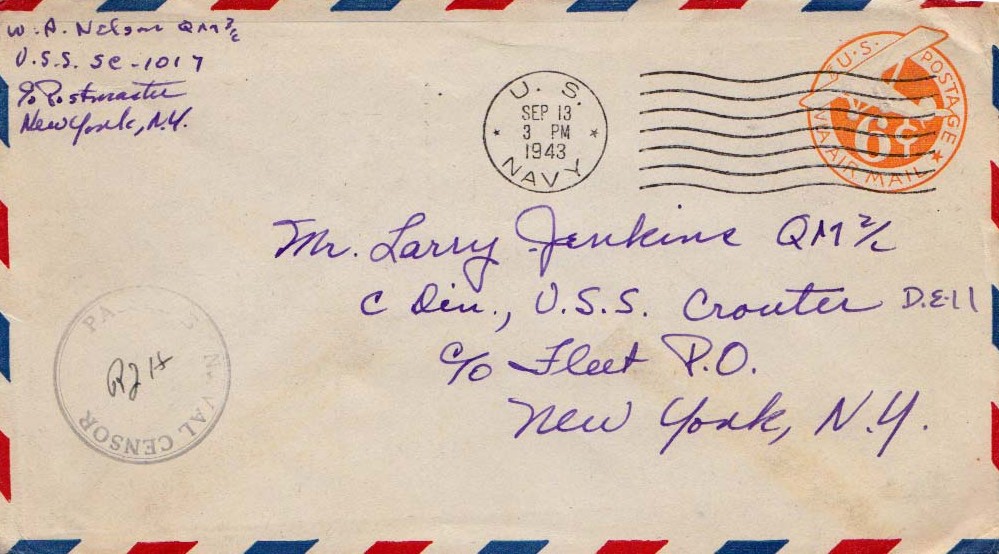 W. A. Nelson QM 2/c
U.S.S. SC-1017
c/o Postmaster
New York, N.Y.
U. S.
SEP 13
3 PM
1943
NAVY
U.S. POSTAGE
6¢
VIA AIR MAIL
Mr. Larry Jenkins QM 2/c
C Div., U.S.S. Crouter D.E-11
c/o Fleet P.O.
New York, N.Y.
NAVAL CENSOR